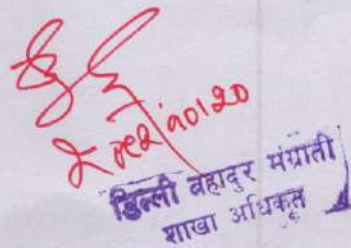 २०८१।१०।२०
डिल्ली बहादुर मंग्राती
शाखा अधिकृत